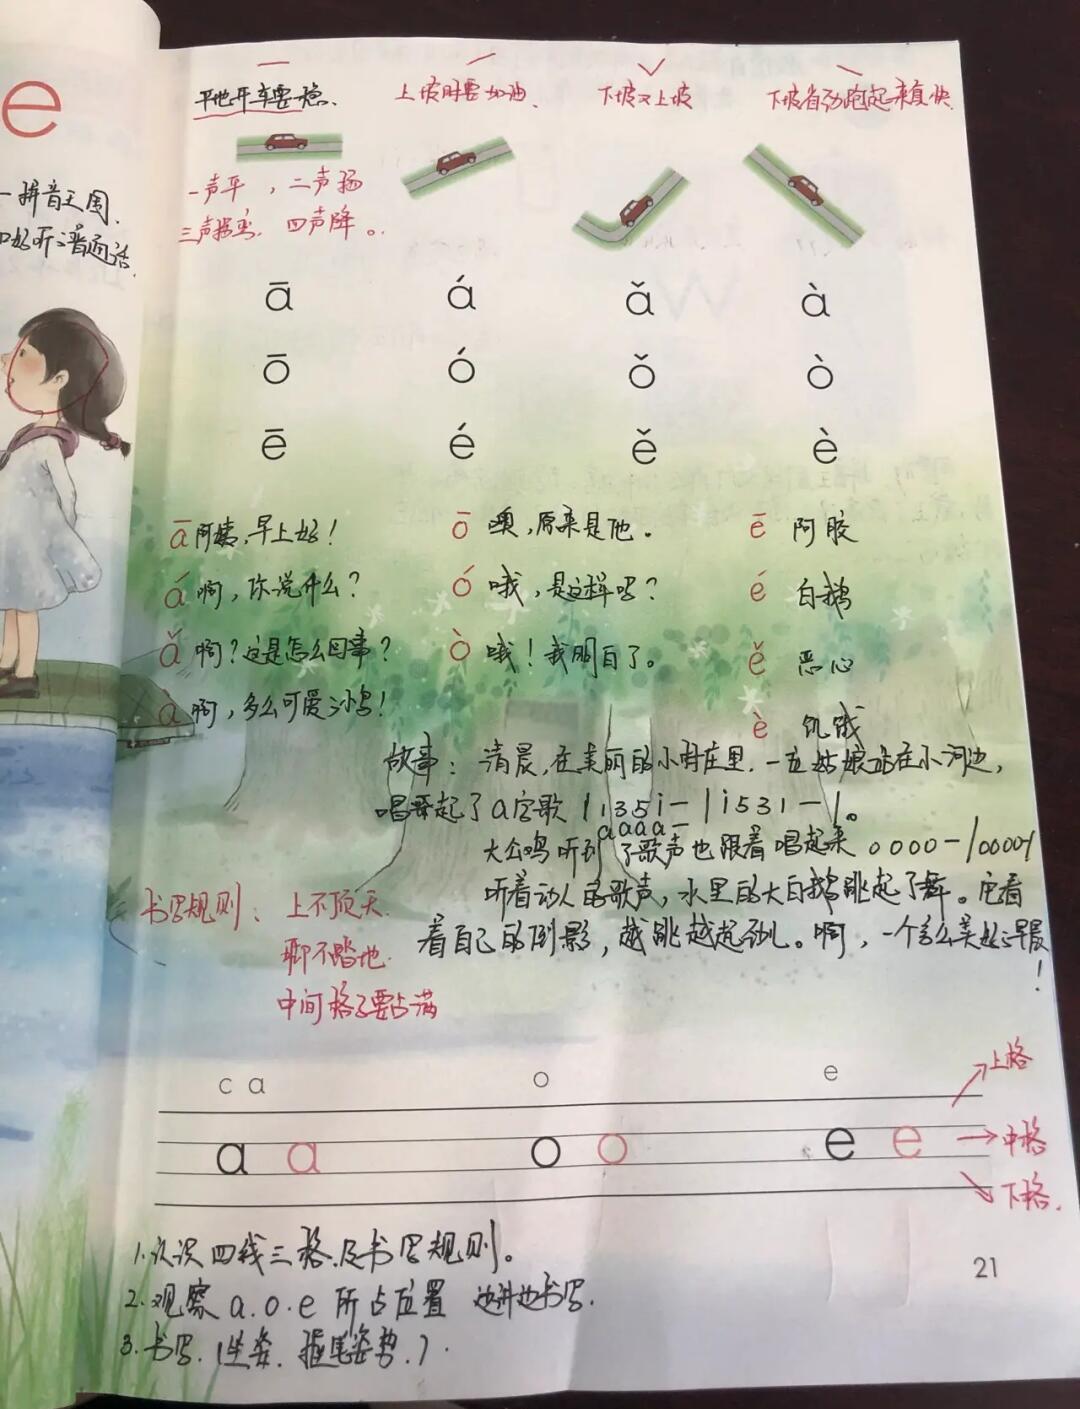 e
一拼音王国.
好听的普通话.
平地开车要稳. 上坡时要加油. 下坡又上坡 下坡省劲跑起来真快
一声平，二声扬
三声拐弯. 四声降。
ā á ǎ à
ō ó ǒ ò
ē é ě è
ā 阿姨,早上好! ō 噢,原来是他。 ē 阿胶
á 啊,你说什么? ó 哦,是这样吗? é 白鹅
ǎ 啊?这是怎么回事? ò 哦!我明白了。 ě 恶心
à 啊,多么可爱的小鸟! è 饥饿
故事: 清晨,在美丽的小村庄里.一位姑娘站在小河边,
唱起了a字歌 | 1 3 5 i - | i 5 3 1 - |。
a a a a -
大公鸡听到了歌声也跟着唱起来 o o o o - | o o o o |
听着动人的歌声,水里的大白鹅跳起了舞。它看
着自己的倒影,越跳越起劲儿。啊,一个多么美好的早晨
!
书写规则: 上不顶天.
脚不踏地.
中间格子要占满
c a o e
a a o o e e
上格
中格
下格.
1.认识四线三格.及书写规则。
2.观察 a.o.e 所占位置 边讲边书写.
3.书写.(坐姿.握笔姿势.).
21